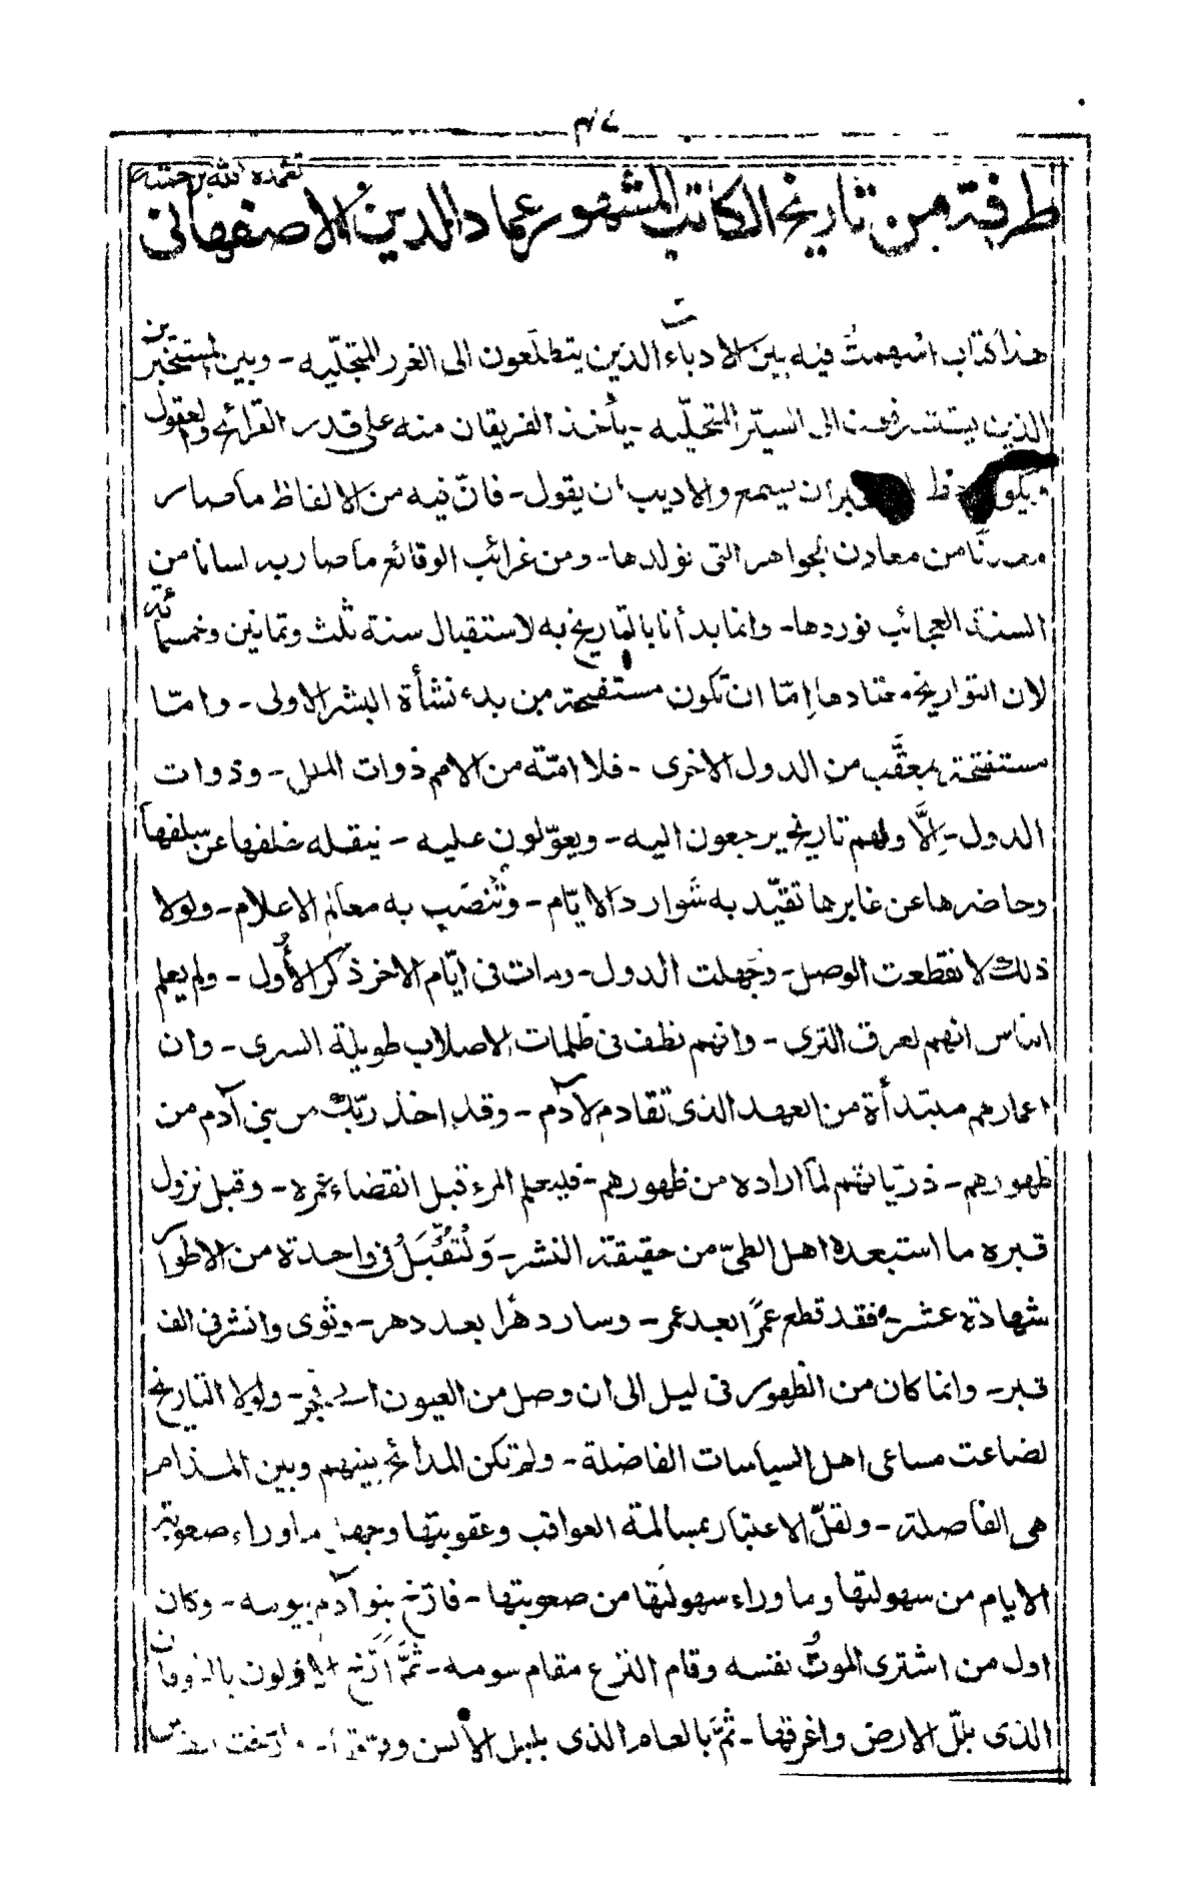 ٤٧
طرفة من تاريخ الكاتب المشهور عماد الدين الاصفهانى
تغمده الله برحمته
هذا كتاب اسهمتُ فيه بين الادباء الذين يتطلعون الى الغرر المتجلّيه - وبين المستخبرين
الذين يستشرفون الى السير المتحلّيه - يأخذ الفريقان منه على قدر القرائح والعقول
ان يسمع والاديب ان يقول - فانّ فيه من الالفاظ ما صار
معدنًا من معادن الجواهر التى نولدها - ومن غرائب الوقائع ما صار به لسانا من
السنة العجائب نوردها - وانما بدأنا بالتاريخ به لاستقبال سنة ثلث وثمانين وخمسمائة
لان التواريخ معتادها إمّا ان تكون مستفتحة من بدء نشأة البشر الاولى - وامّا
مستفتحة بمعقَّب من الدول الاخرى - فلا امّة من الامم ذوات الملل - وذوات
الدول - إلّا ولهم تاريخ يرجعون اليه - ويعوّلون عليه - ينقله خلفها عن سلفها
وحاضرها عن غابرها تقيّد به شوارد الايّام - وتُنصَب به معالم الاعلام - ولولا
ذلك لانقطعت الوصل - وجُهلت الدول - ومات فى ايّام الاخر ذكر الأُول - ولم يعلم
الناس انهم لعرق الثرى - وانهم نطف فى ظلمات الاصلاب طويلة السرى - وان
اعمارهم مبتدأة من العهد الذى تقادم لآدم - وقد اخذ ربّك من بنى آدم من
ظهورهم - ذرّياتهم لما اراده من ظهورهم - فليعلم المرء قبل انقضاء عمره - وقبل نزول
قبره ما استبعده اهل الطىّ من حقيقة النشر - وَلْتُقْبَلْ فى واحدة من الاطوار
شهادة عشر - فقد قطع عمرًا بعد عمر - وسار دهرًا بعد دهر - وثوى وانشر فى الف
قبر - وانما كان من الظهور فى ليل الى ان وصل من العيون الى فجر - ولولا التاريخ
لضاعت مساعى اهل السياسات الفاضلة - ولم تكن المدائح بينهم وبين المذام
هى الفاصلة - ولقلّ الاعتبار بمسالمة العواقب وعقوبتها وجهل ما وراء صعوبة
الايام من سهولتها وما وراء سهولتها من صعوبتها - فارّخ بنو آدم بيومه - وكان
اول من اشترى الموتُ نفسه وقام النزع مقام سومه - ثمَّ أَرّخ الاولون بالطوفان
الذى بلّ الارض واغرقها - ثمّ بالعام الذى بلبل الألسن وفرّقها -